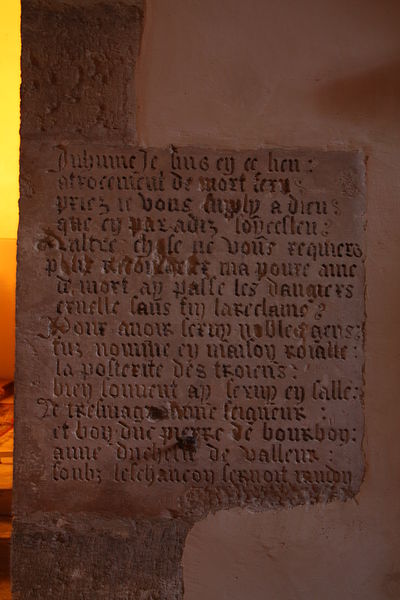 Inhume je suis en ce lieu :
atrocement de mort feru
priez je vous supply a dieu :
que en paradiz soyt esleu :
Aaltre chose ne vous requiers
pour recommander ma poure ame
de mort ay passe les dangiers
eruelle sans fin la reclame :
Pour avoir servy nobles gens :
fuz nomme en maison roialle :
la posterite des troiens :
bien souvent ay servy en salle :
Le tresmagnanime seigneur :
et bon duc pierre de bourbon :
anne duchesse de valleur :
soubz leschancon servoit randon